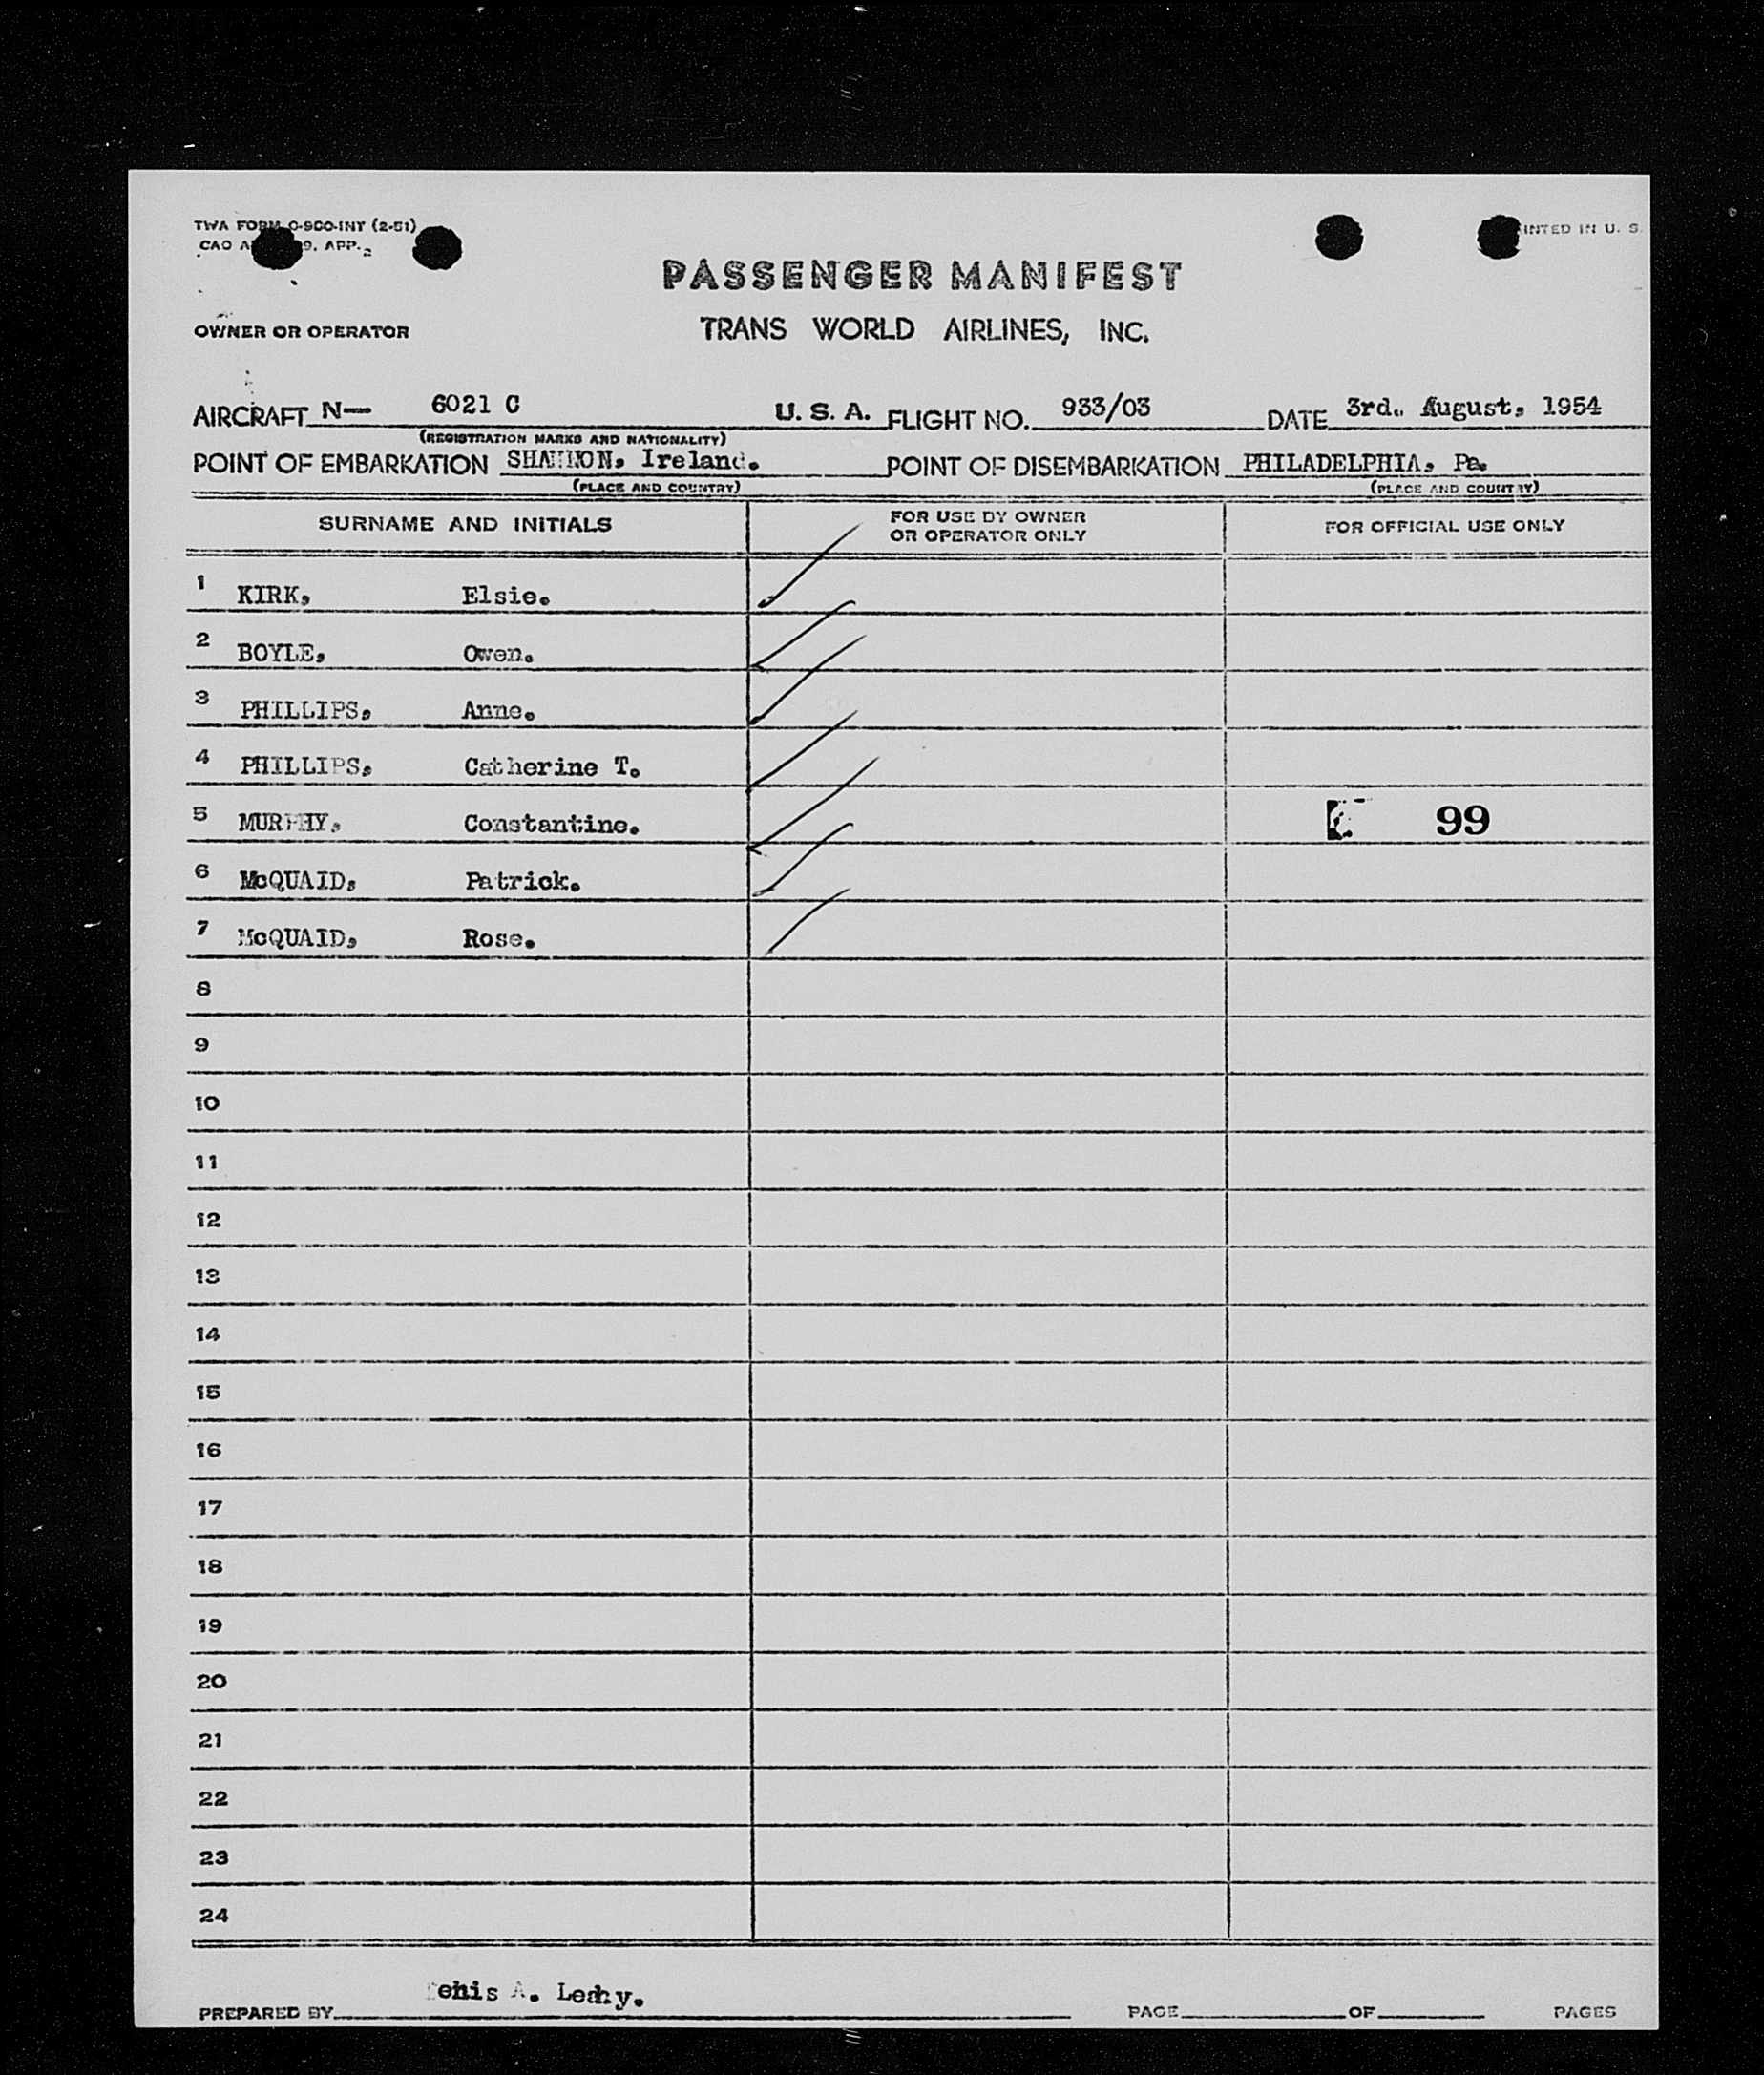 TWA FORM O-900-INT (2-51)
CAO 9. APP.
PRINTED IN U. S.
PASSENGER MANIFEST
OWNER OR OPERATOR TRANS WORLD AIRLINES, INC.
AIRCRAFT N— 6021 C U. S. A. FLIGHT NO. 933/03 DATE 3rd. August, 1954
(REGISTRATION MARKS AND NATIONALITY)
POINT OF EMBARKATION SHANNON, Ireland. POINT OF DISEMBARKATION PHILADELPHIA, Pa.
(PLACE AND COUNTRY) (PLACE AND COUNTRY)
SURNAME AND INITIALS FOR USE BY OWNER OR OPERATOR ONLY FOR OFFICIAL USE ONLY
1 KIRK, Elsie.
2 BOYLE, Owen.
3 PHILLIPS, Anne.
4 PHILLIPS, Catherine T.
5 MURPHY, Constantine. 99
6 McQUAID, Patrick.
7 McQUAID, Rose.
8
9
10
11
12
13
14
15
16
17
18
19
20
21
22
23
24
PREPARED BY A. Leahy. PAGE OF PAGES